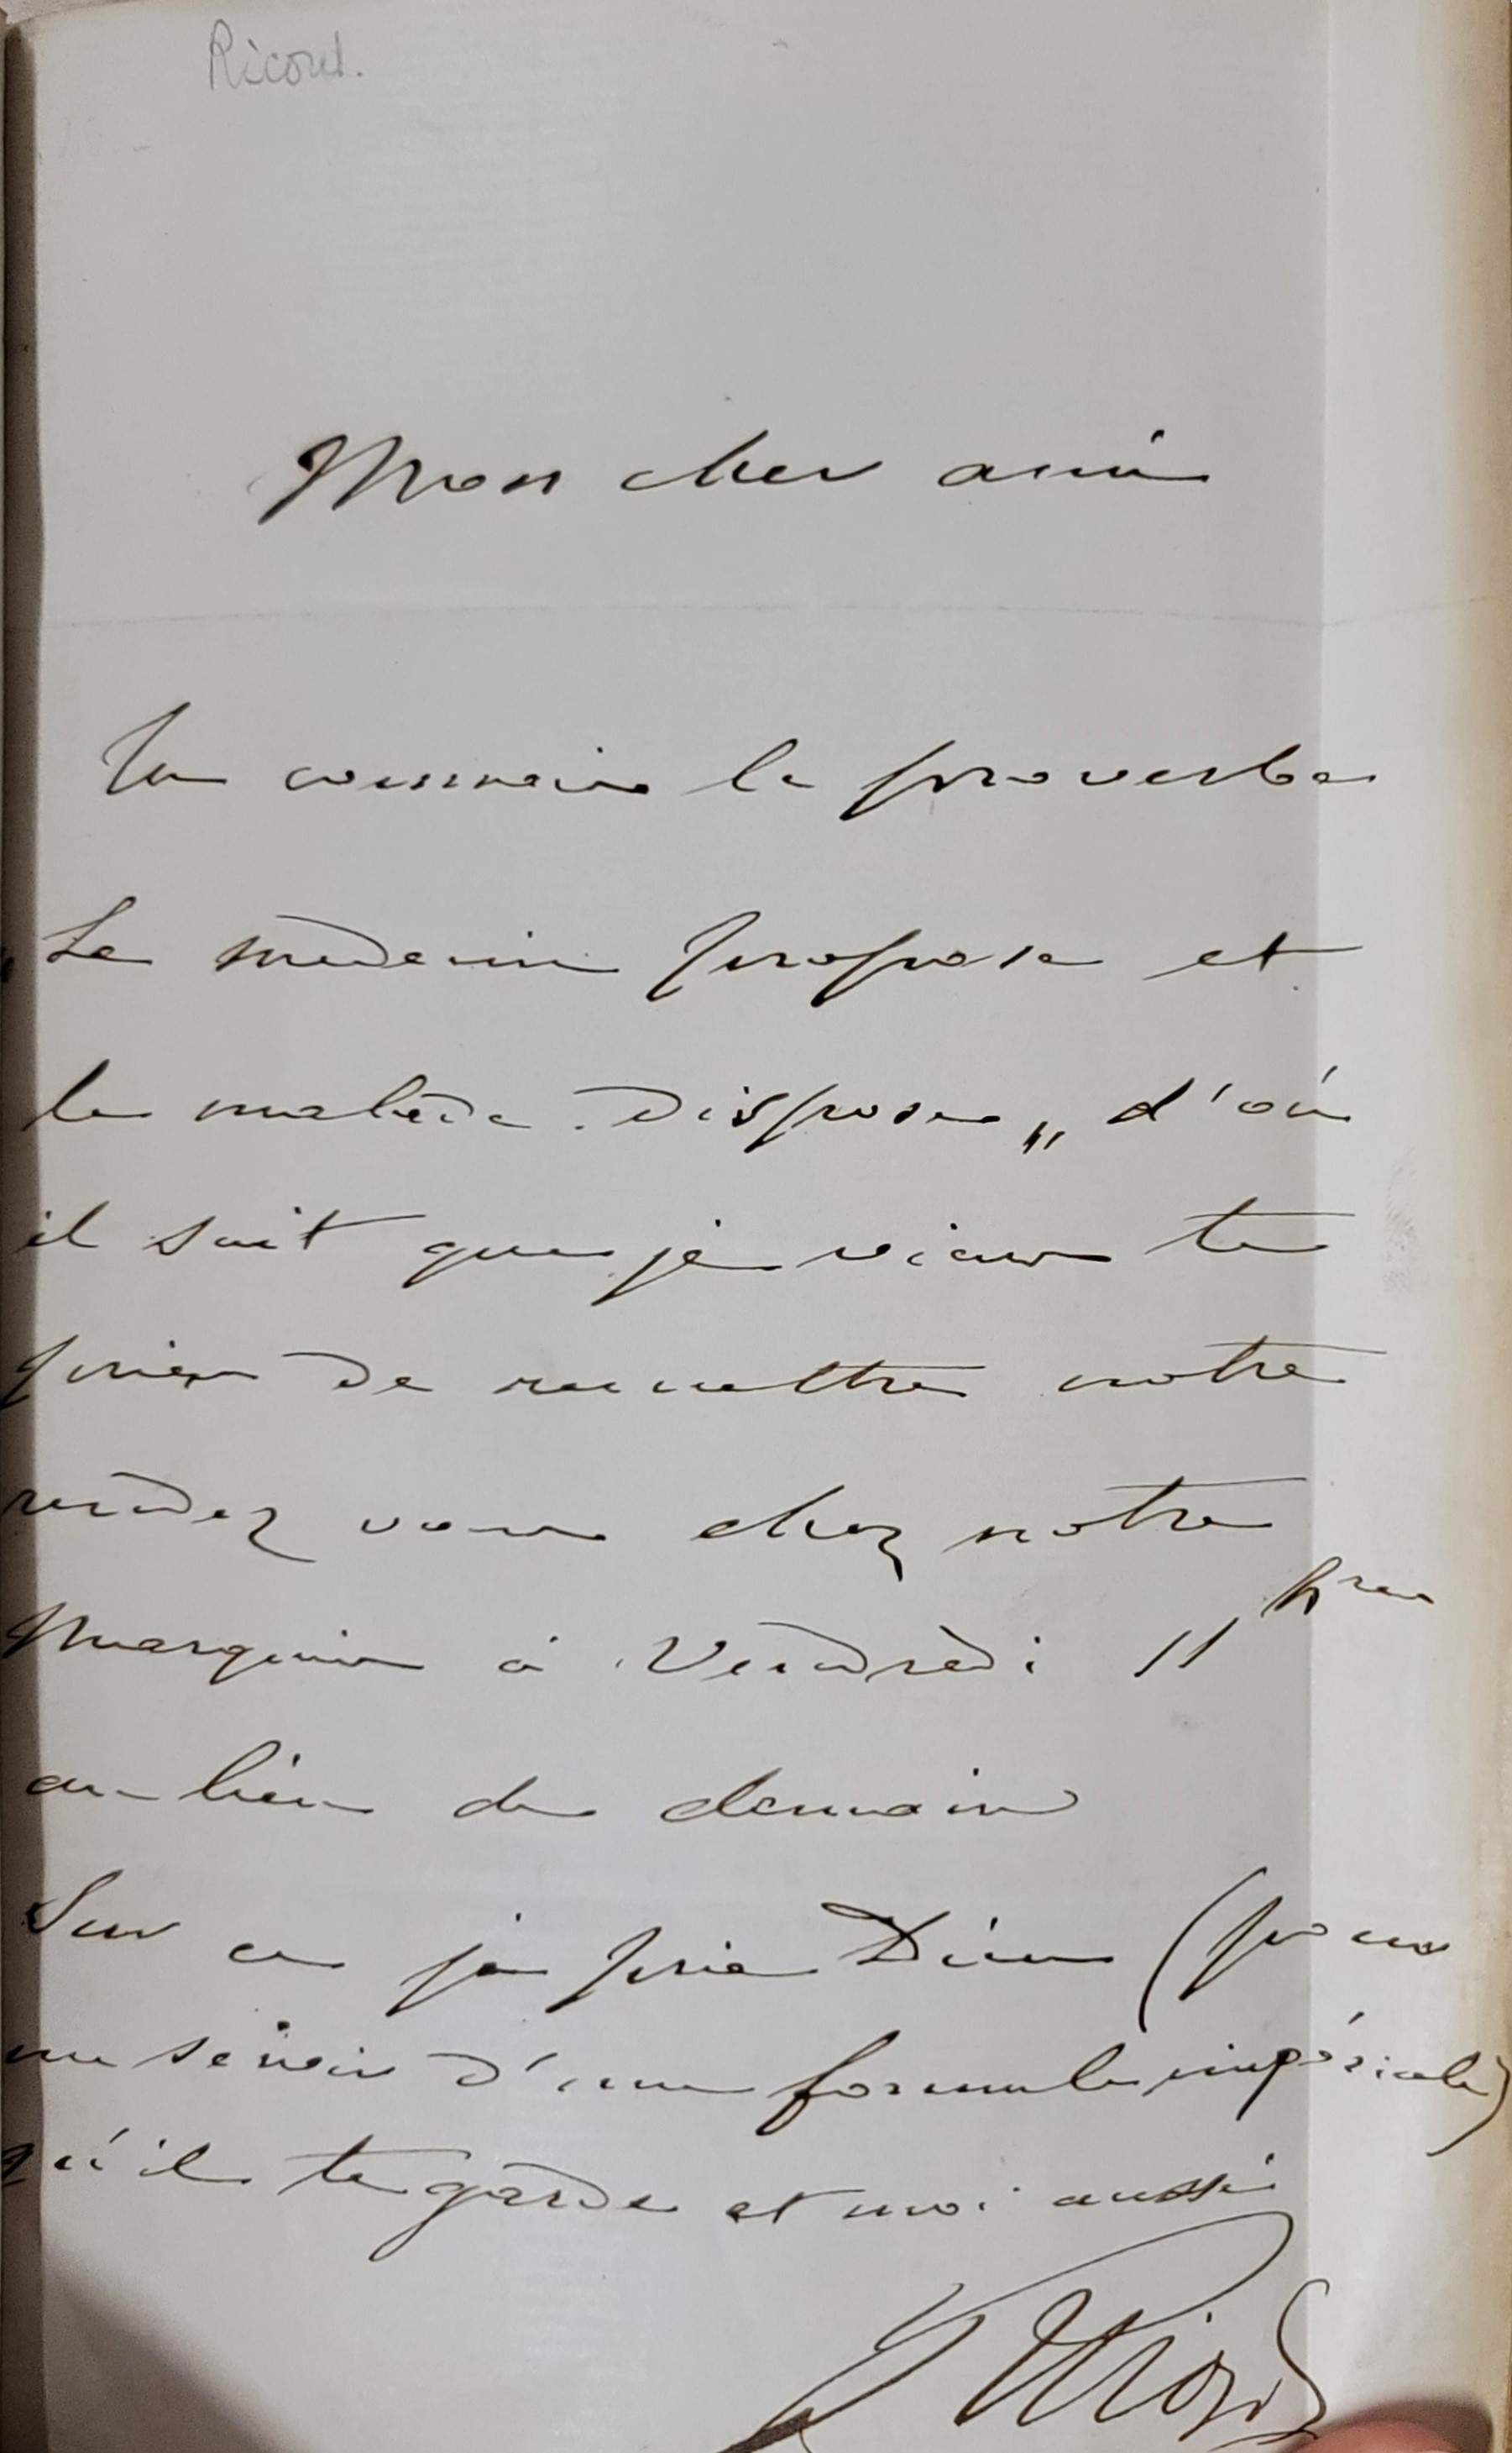 Ricord.
Mon cher ami
Tu connais le proverbe
"Le médecin propose et
le malade dispose„ d'où
il suit que je viens te
prier de remettre notre
rendez vous chez notre
Marquis à Vendredi 11 hres
au lieu de demain
Sur ce je prie Dieu (pour
me servir d'une formule impériale)
qu'il te garde et moi aussi
Ricord